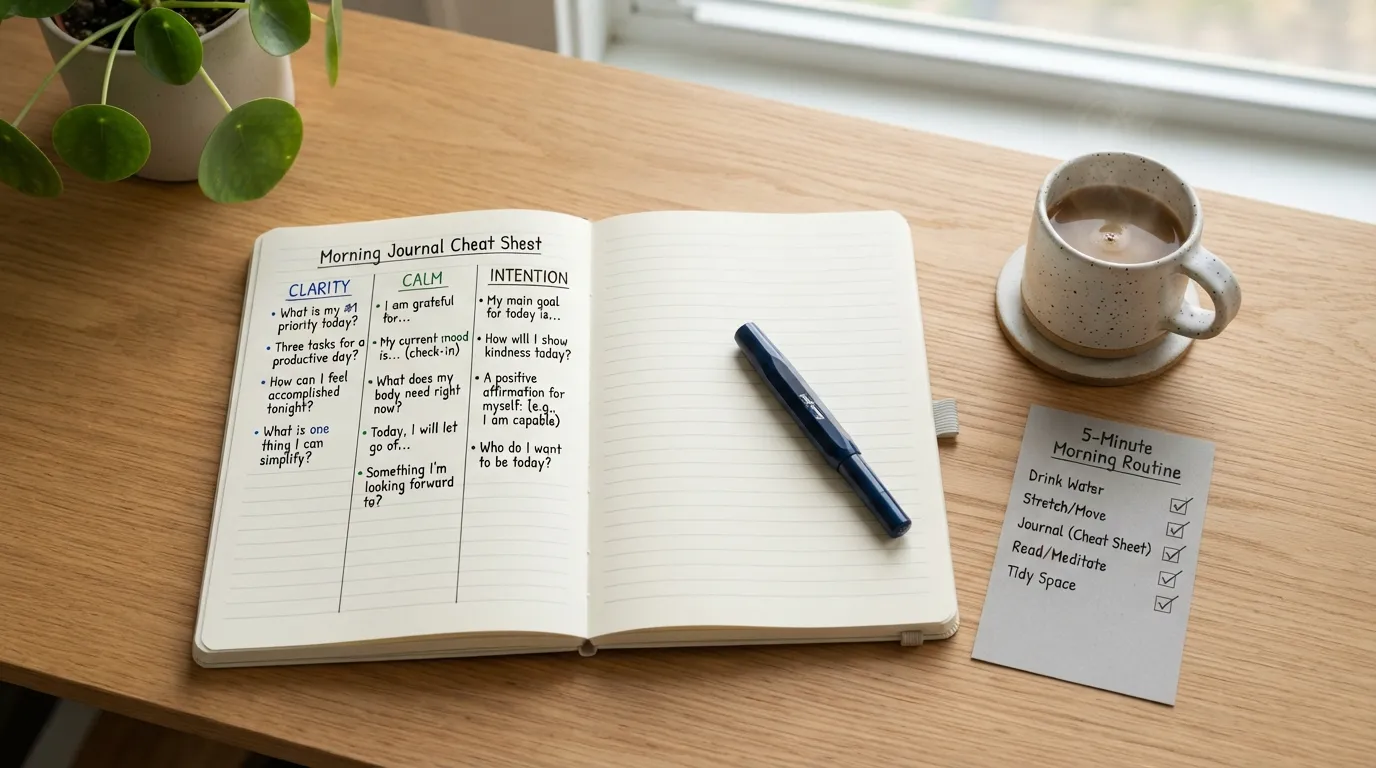 Morning Journal Cheat Sheet
CLARITY
• What is my #1
priority today?
• Three tasks for a
productive day?
• How can I feel
accomplished
tonight?
• What is one
thing I can
simplify?
CALM
• I am grateful
for...
• My current mood
is... (check-in)
• What does my
body need right
now?
• Today, I will let
go of...
• Something I'm
looking forward
to?
INTENTION
• My main goal
for today is...
• How will I show
kindness today?
• A positive
affirmation for
myself: (e.g.,
I am capable)
• Who do I want
to be today?
5-Minute
Morning Routine
Drink Water
Stretch/Move
Journal (Cheat Sheet)
Read/Meditate
Tidy Space